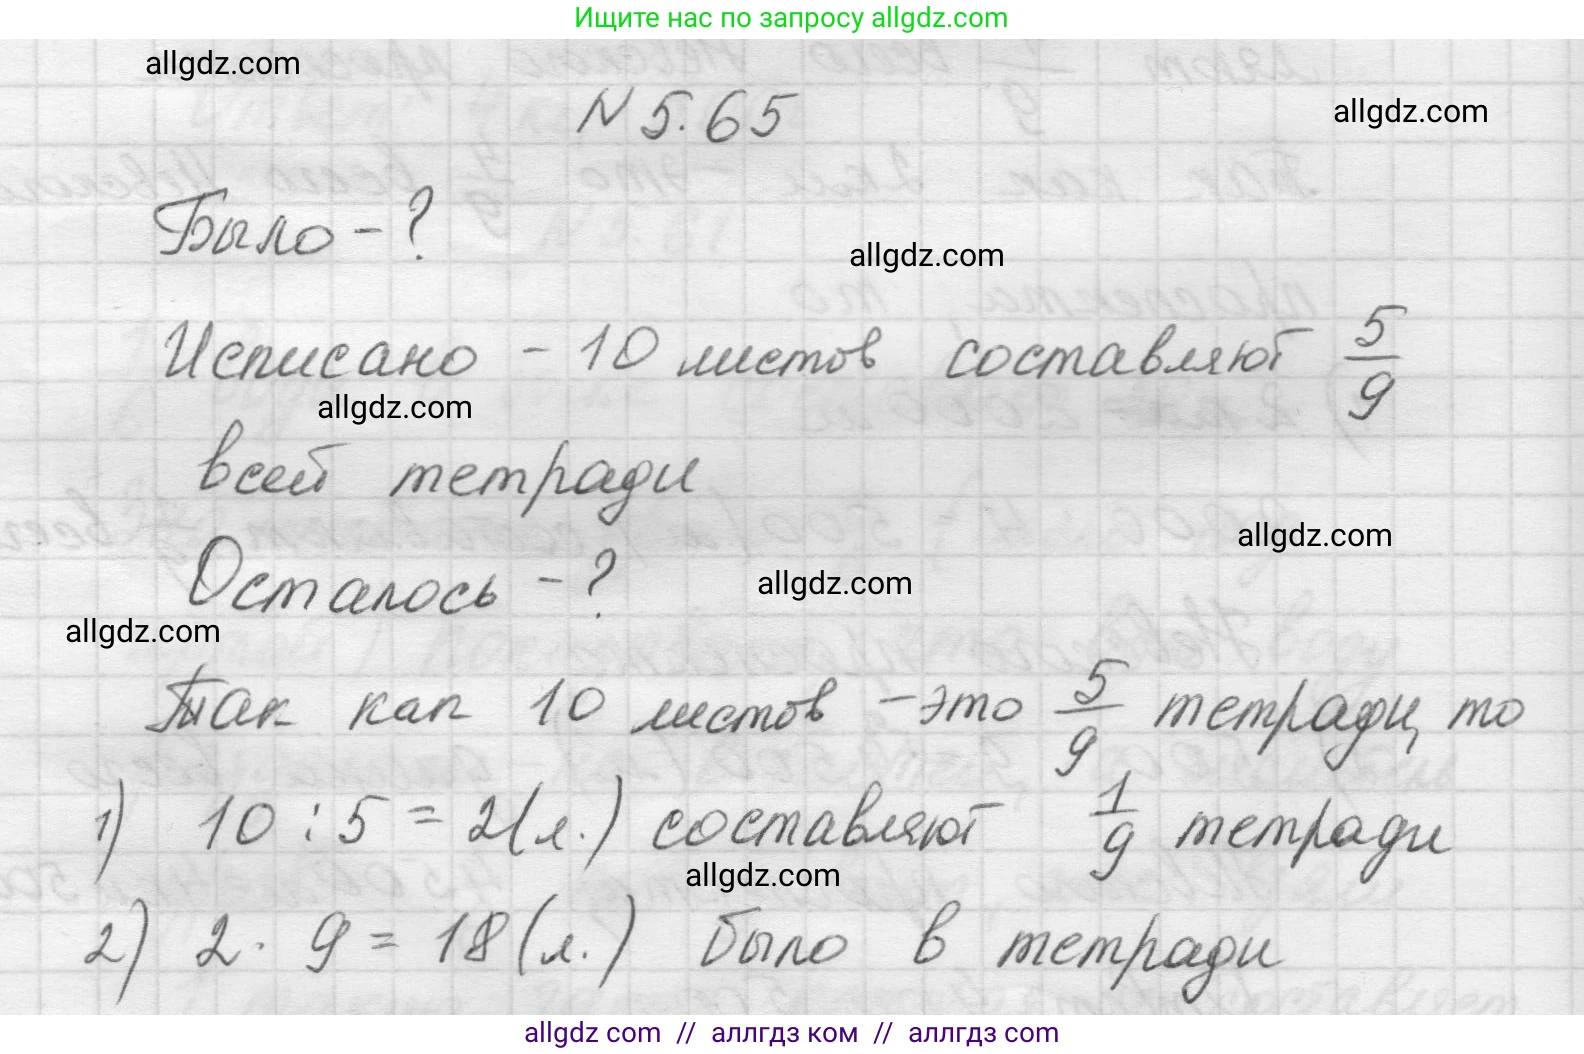 Ищите нас по запросу allgdz.com
allgdz.com
N 5.65
allgdz.com
Было - ?
allgdz.com
Исписано - 10 листов составляют 5/9
allgdz.com
всей тетради
allgdz.com
Осталось - ?
allgdz.com
allgdz.com
Так как 10 листов - это 5/9 тетради, то
1) 10 : 5 = 2 (л.) составляют 1/9 тетради
allgdz.com
2) 2 · 9 = 18 (л.) было в тетради
allgdz.com // аллгдз ком // аллгдз com